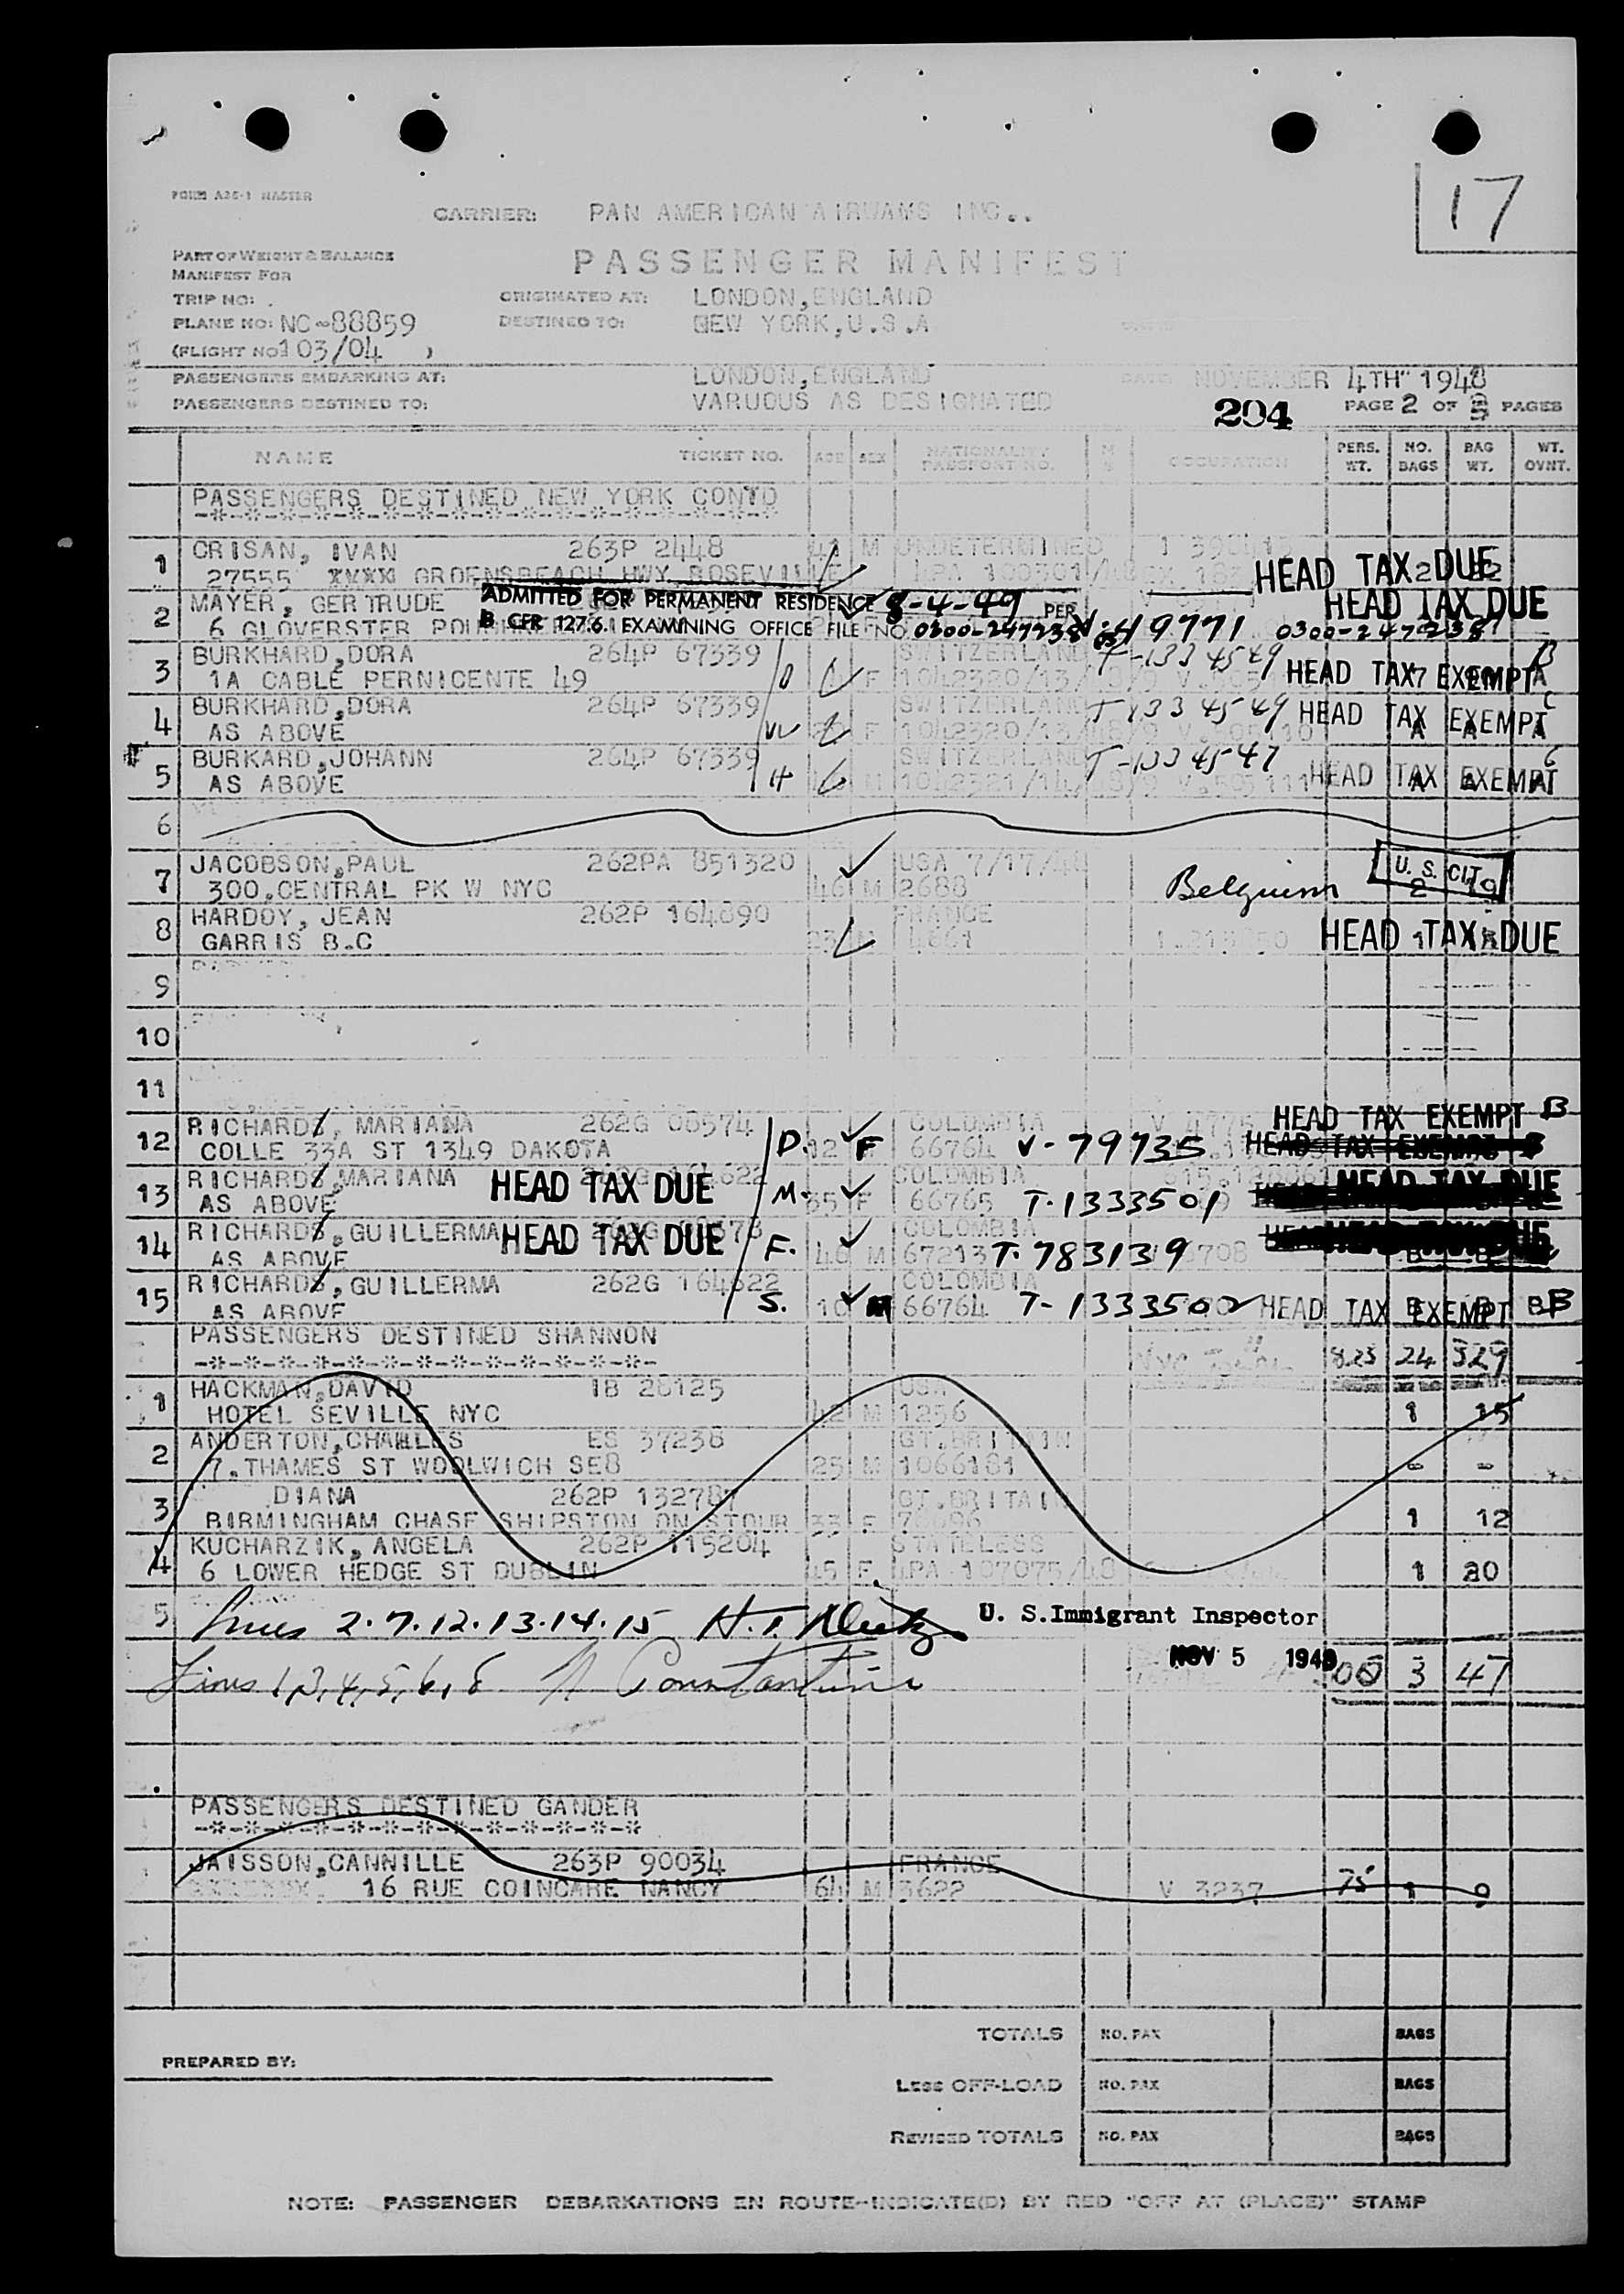 17
FORM A36-1 MASTER
CARRIER: PAN AMERICAN AIRWAMS INC..
PART OF WEIGHT & BALANCE
MANIFEST FOR
PASSENGER MANIFEST
TRIP NO: . ORIGINATED AT: LONDON,ENGLAND
PLANE NO: NC-88859 DESTINED TO: NEW YORK,U.S.A
(FLIGHT NO 103/04 )
PASSENGERS EMBARKING AT: LONDON,ENGLAND DATE: NOVEMBER 4TH" 1948
PASSENGERS DESTINED TO: VARUOUS AS DESIGNATED 204 PAGE 2 OF PAGES
NAME TICKET NO. AGE SEX NATIONALITY PASSPORT NO. M S OCCUPATION PERS. WT. NO. BAGS BAG WT. WT. OVNT.
PASSENGERS DESTINED NEW YORK CONTD
-*-*-*-*-*-*-*-*-*-*-*-*-*-*-*-*-*
1 CRISAN, IVAN 263P 2448 41 M UNDETERMINED
27555 XXXX GROENSBEACH HWY. ROSEVILLE HEAD TAX DUE
2 MAYER, GERTRUDE ADMITTED FOR PERMANENT RESIDENCE 8-4-49 PER HEAD TAX DUE
6 GLOVERSTER 8 CFR 127.6. EXAMINING OFFICE FILE NO. 0300-247238 49771 0300-247238
3 BURKHARD,DORA 264P 67339 SWITZERLAND T-1334549
1A CABLE PERNICENTE 49 F HEAD TAX EXEMPT
4 BURKHARD,DORA 264P 67339 SWITZERLAND T-1334549 HEAD TAX EXEMPT
AS ABOVE W F
5 BURKARD,JOHANN 264P 67339 SWITZERLAND T-1334547
AS ABOVE H M HEAD TAX EXEMPT
6
7 JACOBSON,PAUL 262PA 851320 USA 7/17/48 U. S. CIT.
300.CENTRAL PK W NYC 46 M 2688 Belguim 2
8 HARDOY, JEAN 262P 164890 FRANCE
GARRIS B.C 4661 HEAD TAX DUE
9
10
11
12 RICHARDS, MARIANA 262G 06574 COLOMBIA HEAD TAX EXEMPT B
COLLE 33A ST 1349 DAKOTA D. 12 F 66764 V-79735 HEAD TAX EXEMPT
13 RICHARDS,MARIANA HEAD TAX DUE COLOMBIA
AS ABOVE M. 35 F 66765 T-1333501 HEAD TAX DUE
14 RICHARDS,GUILLERMA HEAD TAX DUE COLOMBIA
AS ABOVE F. 40 M 67213 T-783139
15 RICHARDS,GUILLERMA 262G 164622 COLOMBIA
AS ABOVE S. 10 M 66764 T-1333502 HEAD TAX EXEMPT B
PASSENGERS DESTINED SHANNON
-*-*-*-*-*-*-*-*-*-*-*-*-*- 823 24 329
1 HACKMAN,DAVID IB 26125 USA
HOTEL SEVILLE NYC 42 M 1256 1 15
2 ANDERTON,CHARLES ES 37238 GT.BRITAIN
7.THAMES ST WOOLWICH SE8 25 M 1066181 - -
3 DIANA 262P 132787 GT.BRITAIN
BIRMINGHAM CHASE SHIPSTON ON STOUR 33 F 1 12
4 KUCHARZIK, ANGELA 262P 115204 STATELESS
6 LOWER HEDGE ST DUBLIN 45 F 1 20
5 Lines 2.7.12.13.14.15 U. S.Immigrant Inspector
NOV 5 1948
Lines 1,3,4,5,6,8 3 47
PASSENGERS DESTINED GANDER
-*-*-*-*-*-*-*-*-*-*-*-*-*
JAISSON,CANNILLE 263P 90034 FRANCE
16 RUE COINCARE NANCY 64 M 3622 V 3237 75 1 9
TOTALS NO. PAX BAGS
PREPARED BY:
LESS OFF-LOAD NO. PAX BAGS
REVISED TOTALS NO. PAX BAGS
NOTE: PASSENGER DEBARKATIONS EN ROUTE-INDICATE(D) BY RED "OFF AT (PLACE)" STAMP